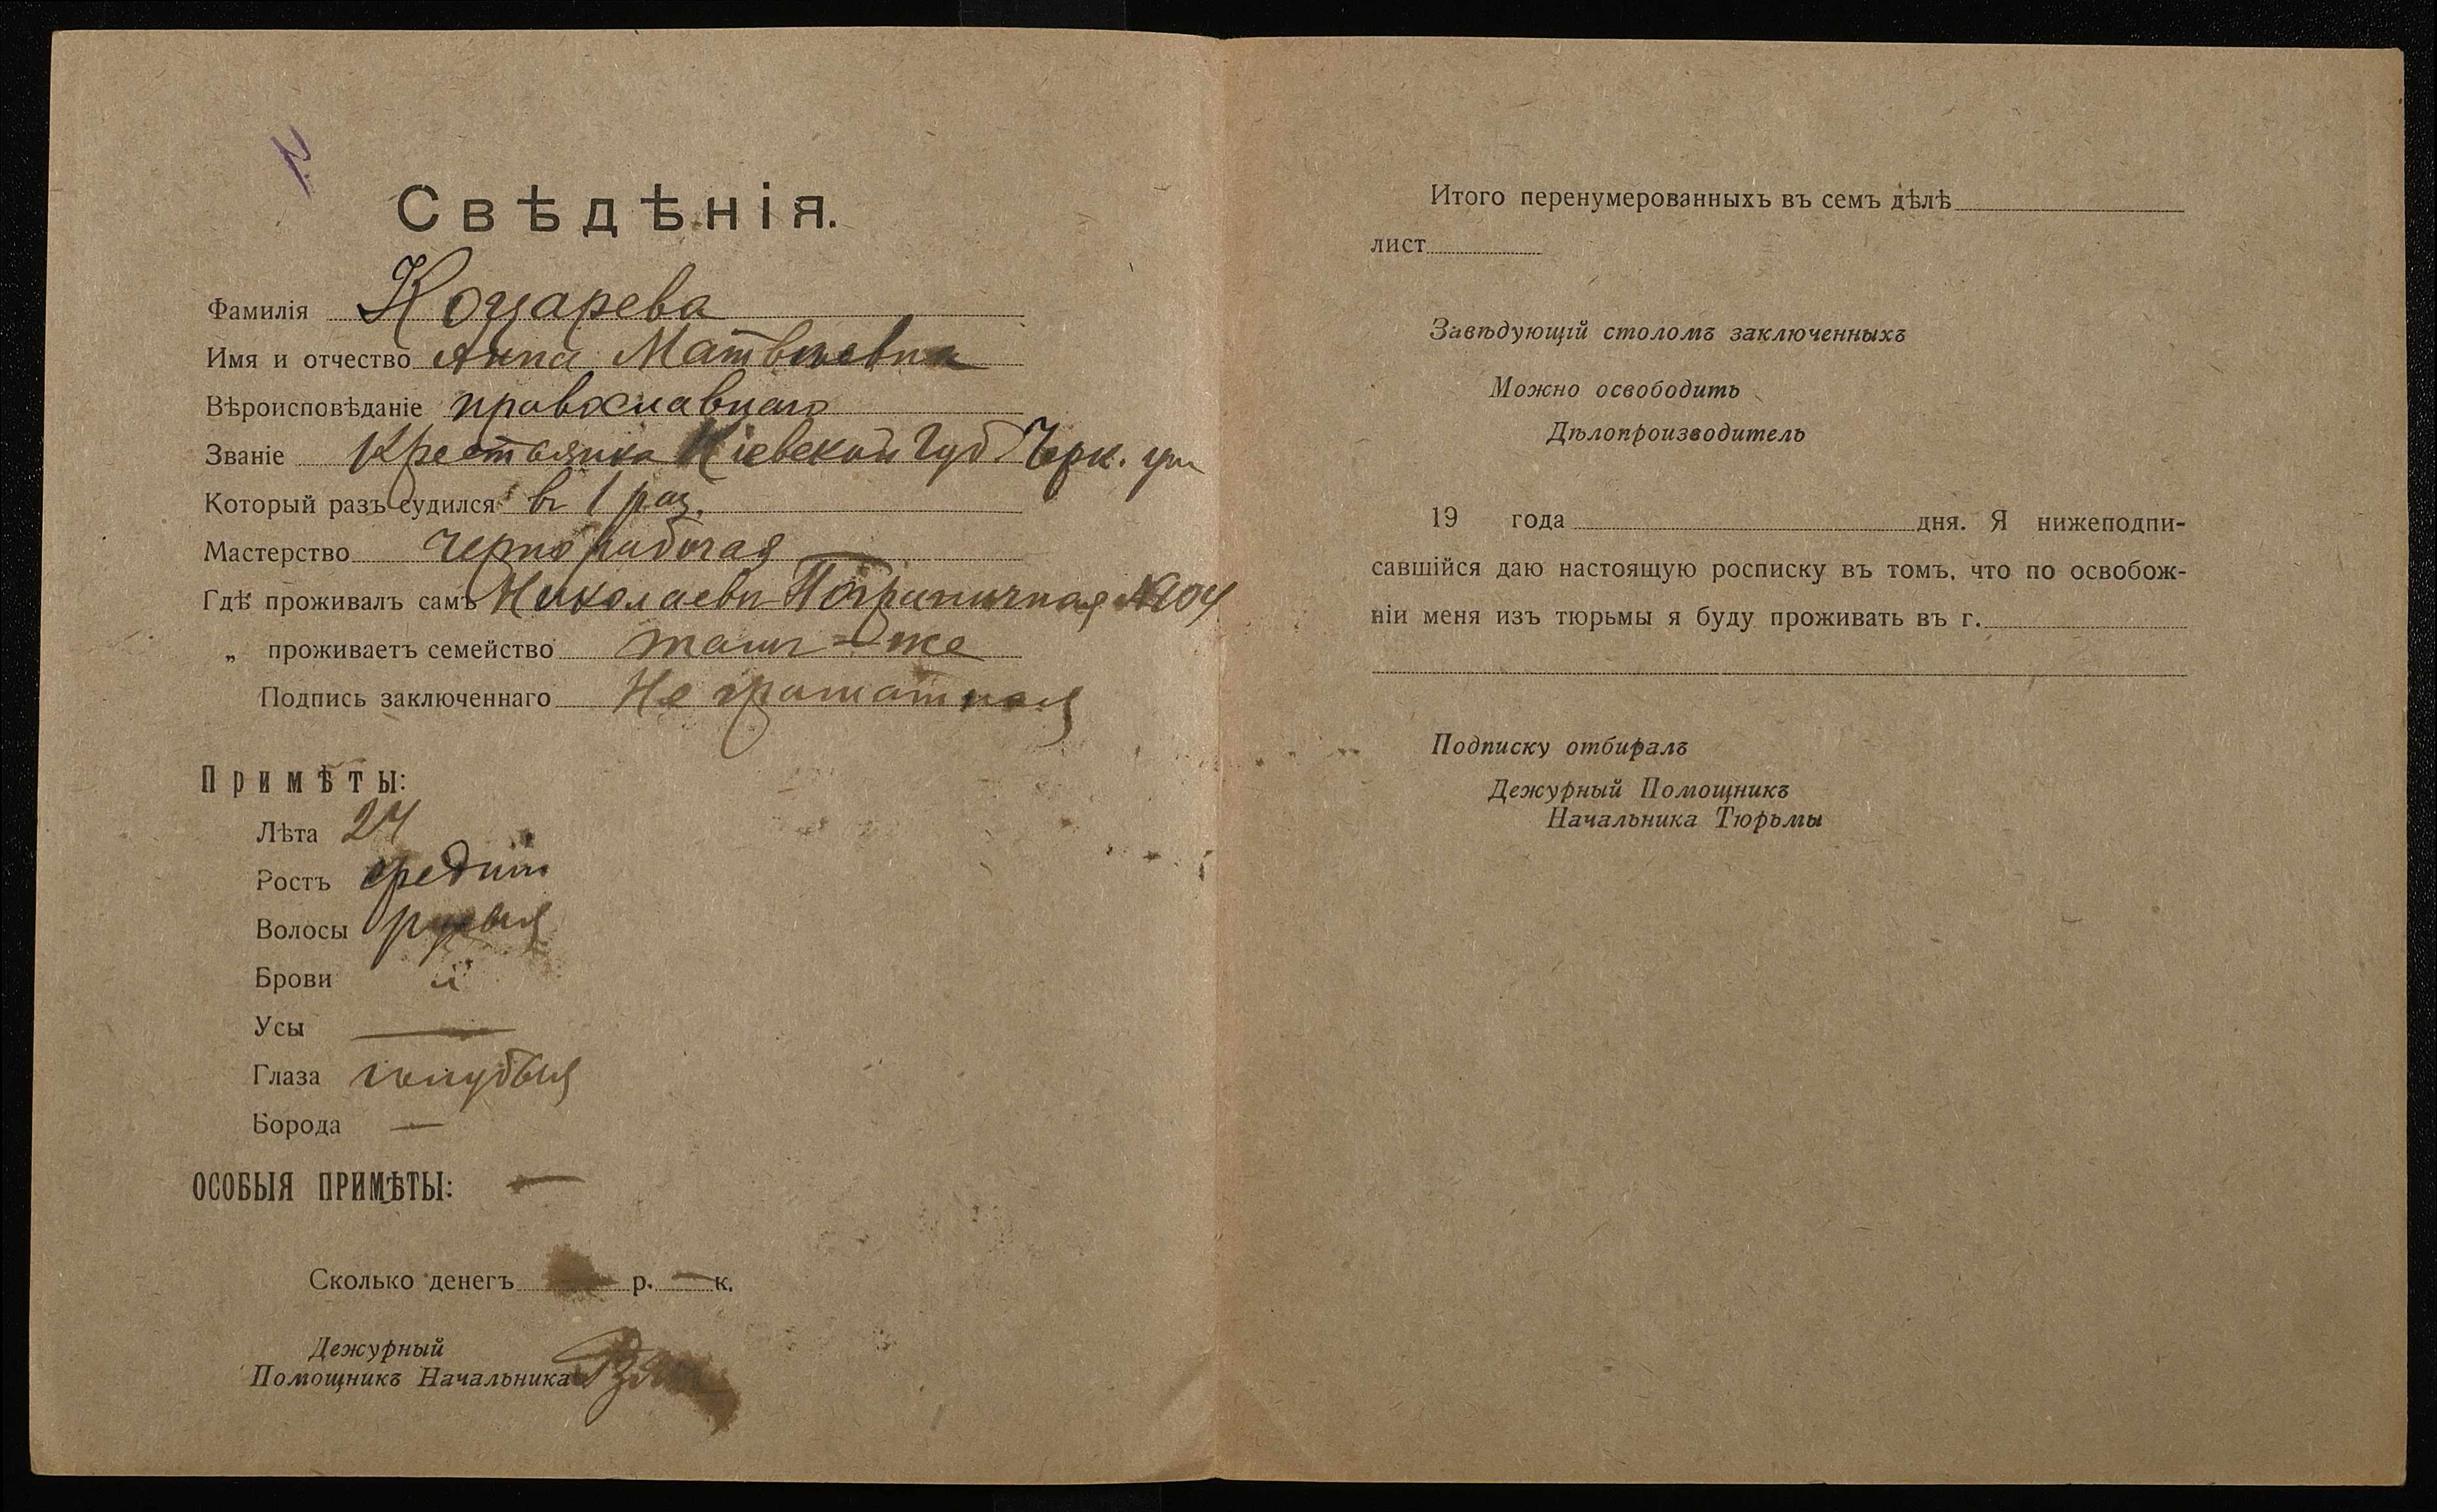 Свѣдѣнія.
Фамилія Коцарева
Имя и отчество Анна Матвѣевна
Вѣроисповѣданіе православнаго
Званіе Крестьянка Кіевской Губ. Черк. у
Который разъ судился въ 1 раз.
Мастерство чернорабочая
Гдѣ проживалъ самъ Николаевъ Пограничная №204
„ проживаетъ семейство тамъ-же
Подпись заключеннаго Не граматная
Примѣты:
Лѣта 24
Ростъ средній
Волосы русыя
Брови "
Усы —
Глаза голубыя
Борода —
ОСОБЫЯ ПРИМѢТЫ: —
Сколько денегъ р. — к.
Дежурный
Помощникъ Начальника
Итого перенумерованныхъ въ семъ дѣлѣ
лист
Завѣдующій столомъ заключенныхъ
Можно освободить
Дѣлопроизводитель
19 года дня. Я нижеподпи-
савшійся даю настоящую росписку въ томъ, что по освобож-
ніи меня изъ тюрьмы я буду проживать въ г.
Подписку отбиралъ
Дежурный Помощникъ
Начальника Тюрьмы